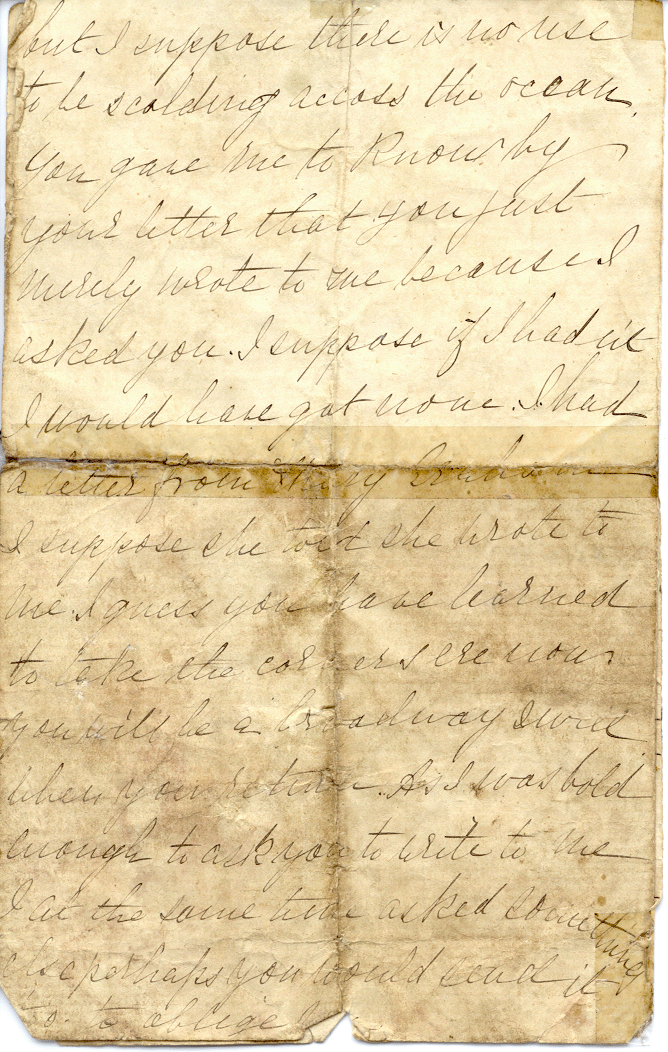 but I suppose there is no use
to be scolding across the ocean.
You gave me to know by
your letter that you just
merely wrote to me because I
asked you. I suppose if I hadn't
I would have got none. I had
a letter from Mary
I suppose she told she wrote to
me. I guess you have learned
to take the corners ere now
you will be a broadway swell
when you return. As I was bold
enough to ask you to write to me
I at the same time asked something
else perhaps you would send it
to oblige